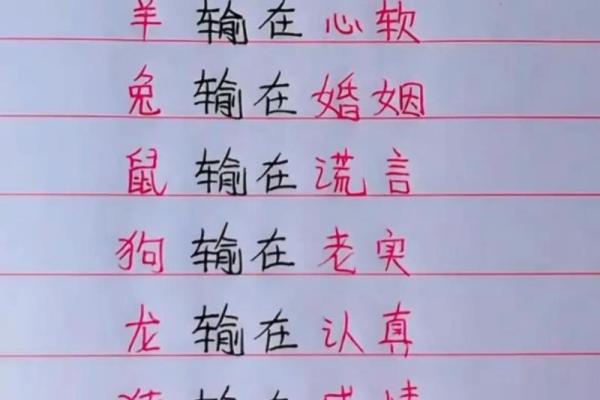 羊 输在 心软
兔 输在 婚姻
鼠 输在 谎言
狗 输在 老实
龙 输在 认真
猪 输在 感情